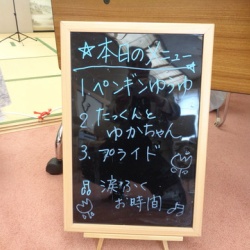 ☆本日のメニュー
1 ペンギンゆうゆ
2 たっくんと
ゆかちゃん
3. プライド
品 涙ふく
お時間♫